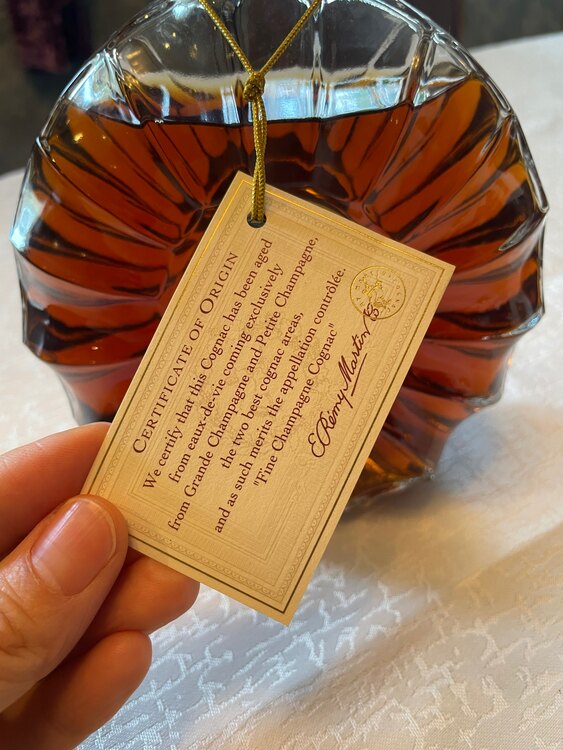 CERTIFICATE OF ORIGIN
We certify that this Cognac has been aged
from eaux-de-vie coming exclusively
from Grande Champagne and Petite Champagne,
the two best cognac areas,
and as such merits the appellation contrôlée.
"Fine Champagne Cognac"
E. Rémy Martin & C